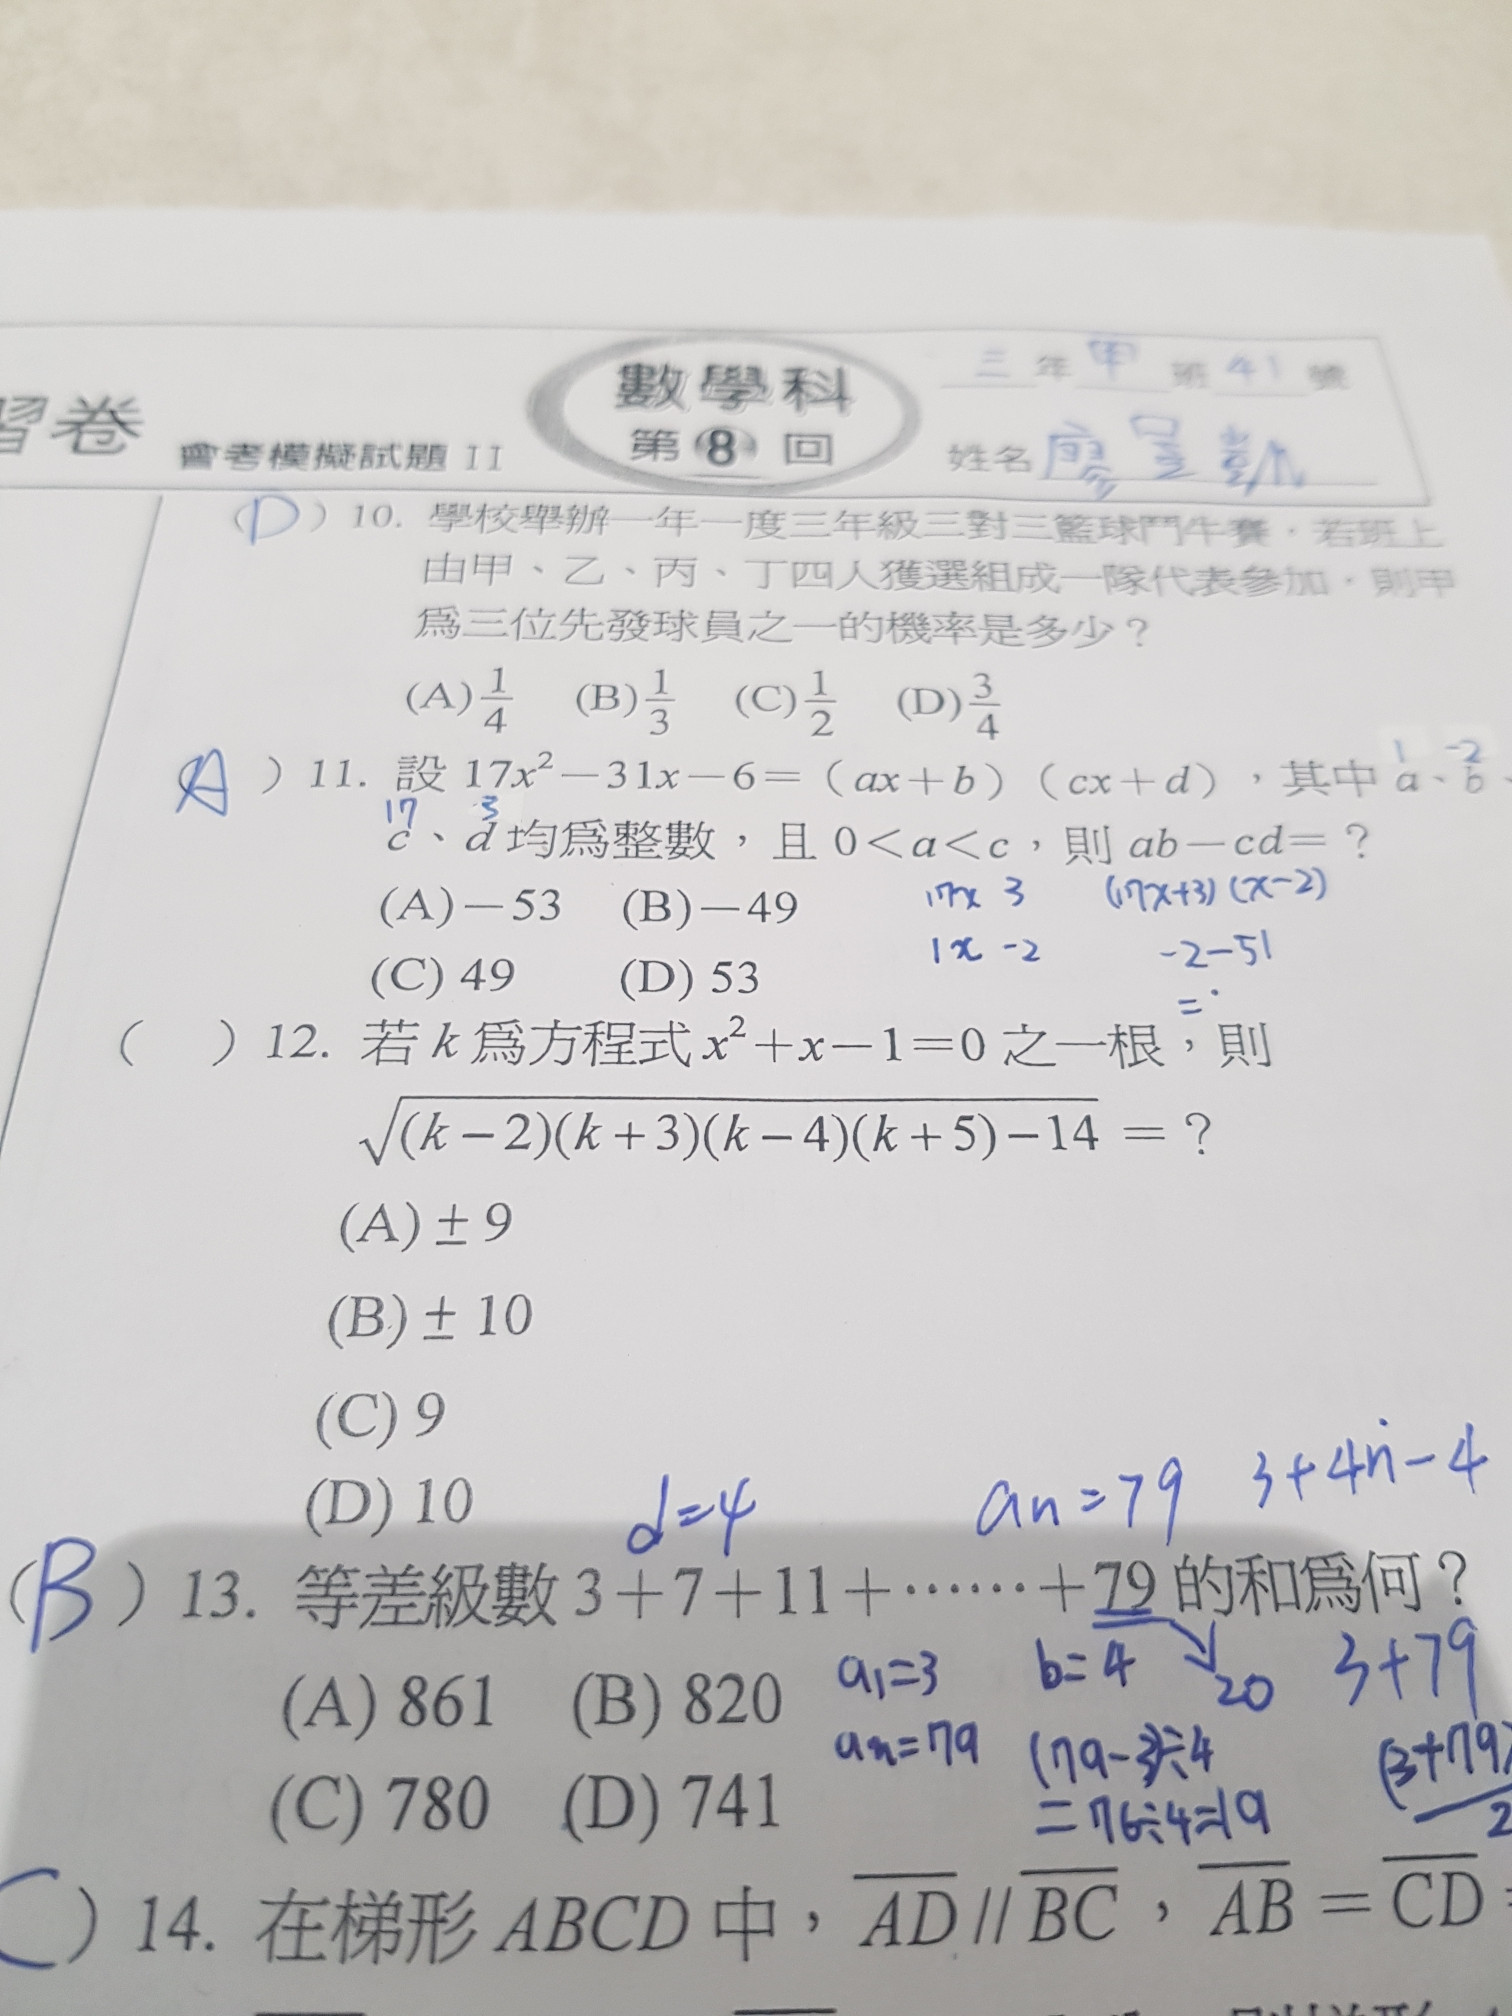 習卷
會考模擬試題 II
數學科
第 8 回
三 年 甲 班 41 號
姓名 廖
(D) 10. 學校舉辦一年一度三年級三對三籃球鬥牛賽，若班上
由甲、乙、丙、丁四人獲選組成一隊代表參加，則甲
為三位先發球員之一的機率是多少？
(A) 1/4 (B) 1/3 (C) 1/2 (D) 3/4
1 -2
(A) 11. 設 17x²－31x－6＝(ax＋b)(cx＋d)，其中 a、b、
17 3
c、d 均為整數，且 0＜a＜c，則 ab－cd＝？
(A)－53 (B)－49
17x 3 (17x+3)(x-2)
1x -2 -2-51
=
(C) 49 (D) 53
( ) 12. 若 k 為方程式 x²＋x－1＝0 之一根，則
√(k－2)(k＋3)(k－4)(k＋5)－14 ＝？
(A) ± 9
(B) ± 10
(C) 9
(D) 10
d=4 an=79 3+4n-4
(B) 13. 等差級數 3＋7＋11＋……＋79 的和為何？
(A) 861 (B) 820
a₁=3 b=4 20 3+79
an=79 (79-3)÷4 (3+79)
=76÷4=19 2
(C) 780 (D) 741
C) 14. 在梯形 ABCD 中，AD // BC，AB＝CD＝